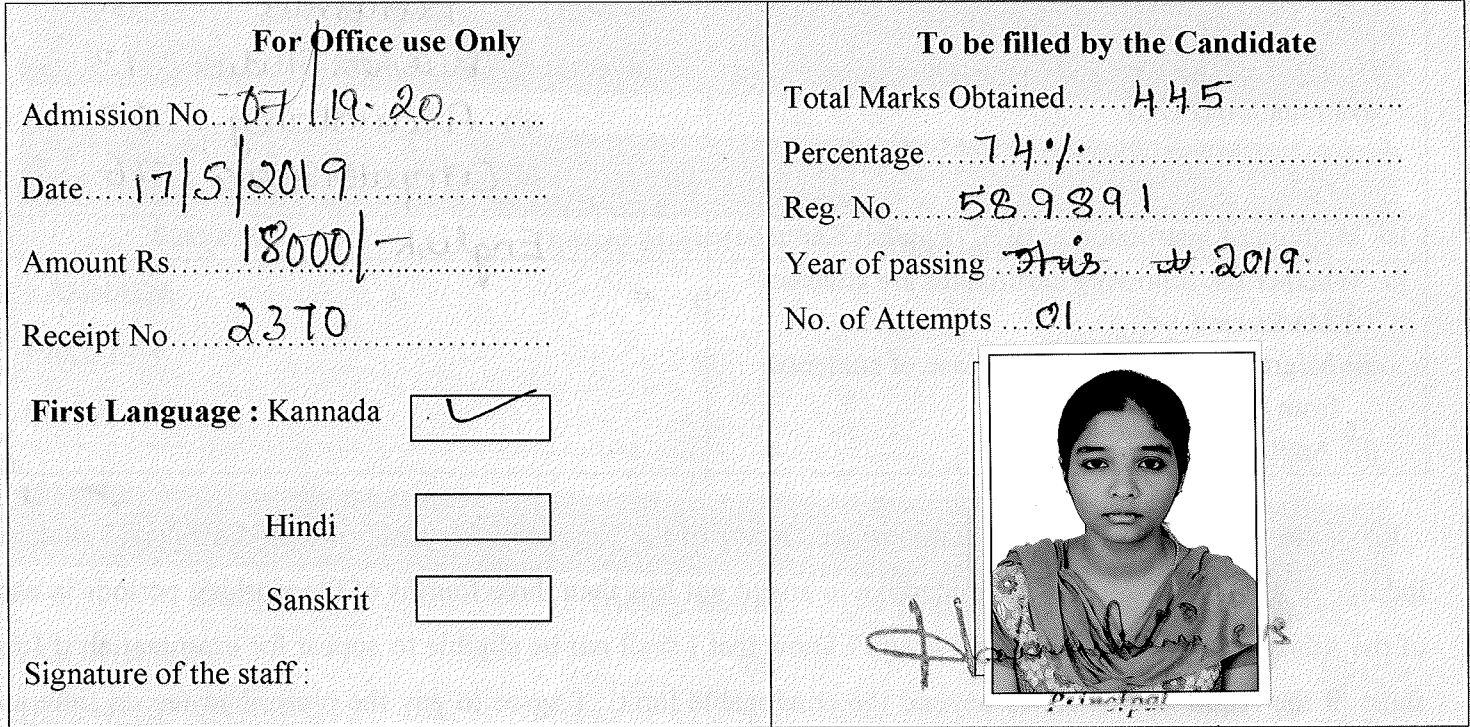 For Office use Only
Admission No...07/19-20.
Date....17/5/2019
Amount Rs....18000/-
Receipt No....2370
First Language : Kannada ✓
Hindi
Sanskrit
Signature of the staff :
To be filled by the Candidate
Total Marks Obtained......445
Percentage.....74%
Reg. No.....589891
Year of passing ... 2019.
No. of Attempts ...01
Principal